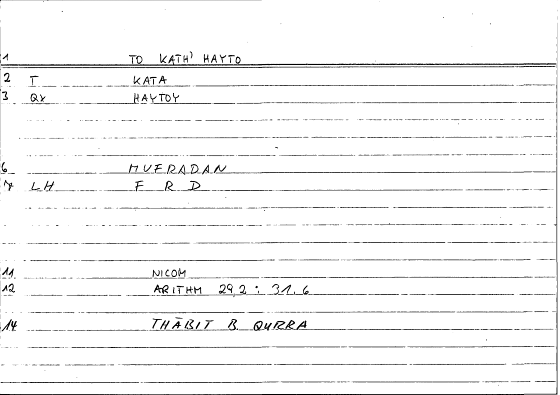 1 TO KATH' HAYTO
2 T KATA
3 QY HAYTOY
6 MUFRADAN
7 LH F R D
11 NICOM
12 ARITHM 29,2 : 31,6
14 THĀBIT B QURRA